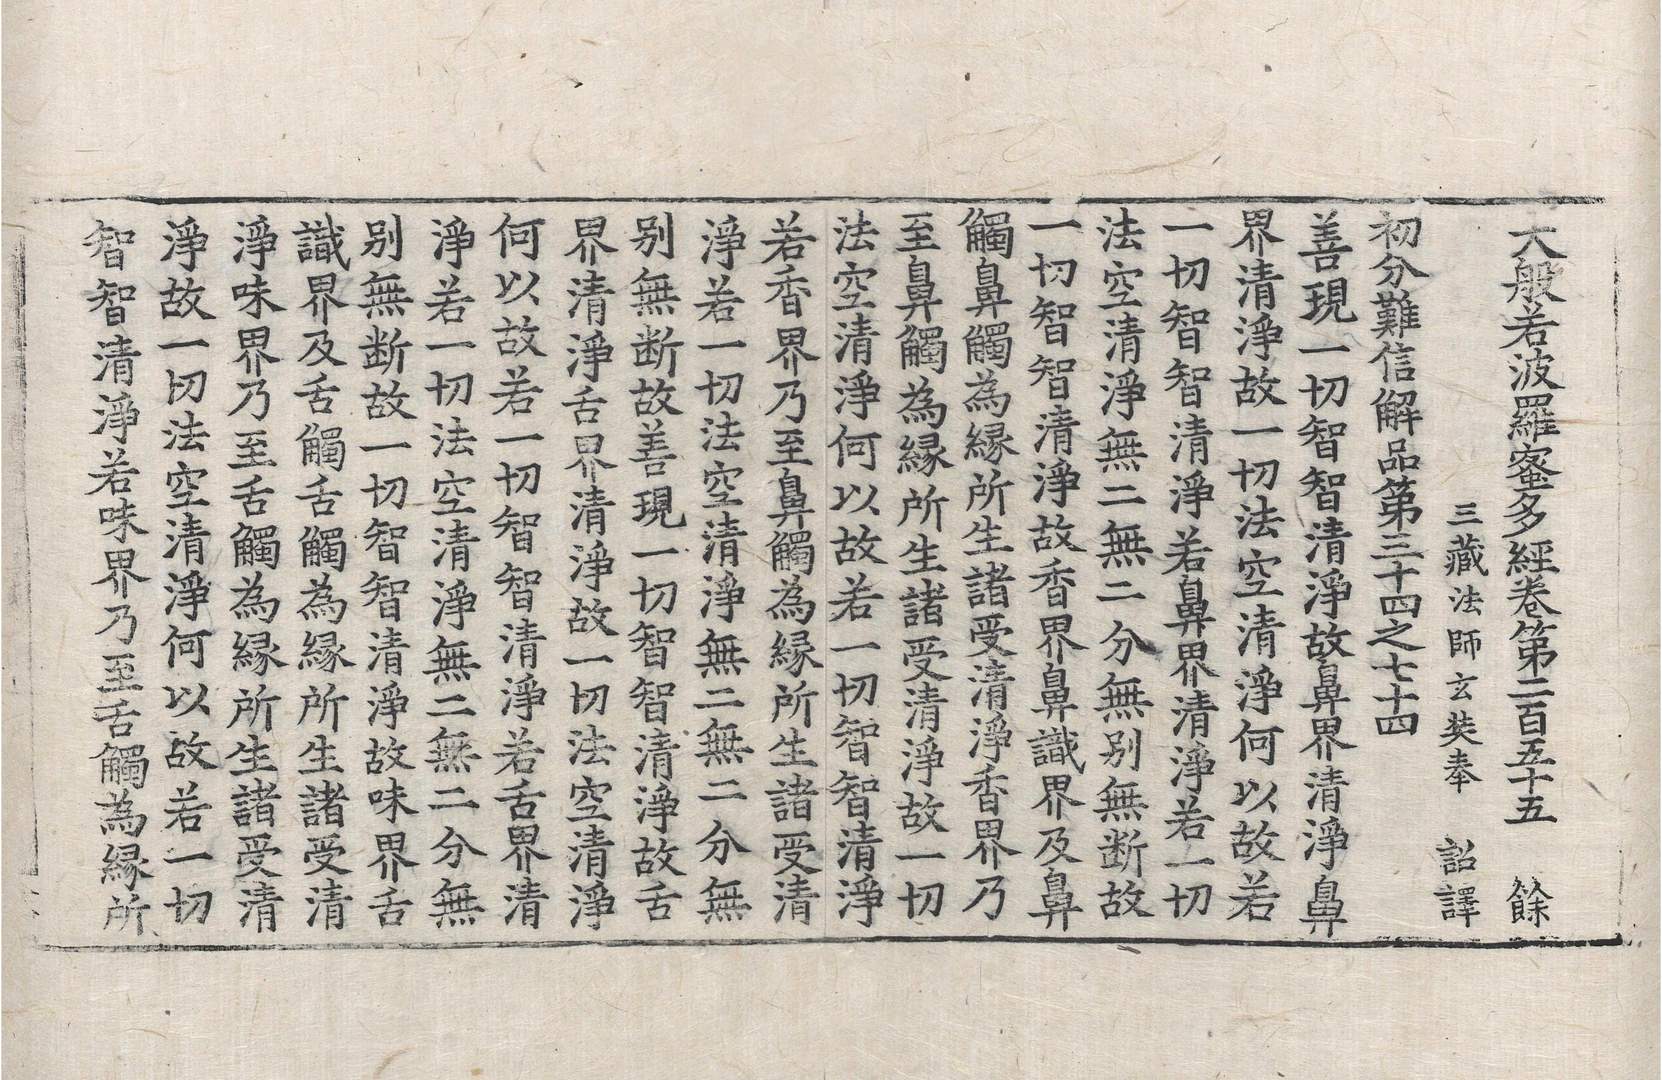 大般若波羅蜜多經卷第二百五十五　餘
三藏法師玄奘奉　詔譯
初分難信解品第三十四之七十四
善現一切智智清淨故鼻界清淨鼻
界清淨故一切法空清淨何以故若
一切智智清淨若鼻界清淨若一切
法空清淨無二無二分無別無斷故
一切智智清淨故香界鼻識界及鼻
觸鼻觸為緣所生諸受清淨香界乃
至鼻觸為緣所生諸受清淨故一切
法空清淨何以故若一切智智清淨
若香界乃至鼻觸為緣所生諸受清
淨若一切法空清淨無二無二分無
別無断故善現一切智智清淨故舌
界清淨舌界清淨故一切法空清淨
何以故若一切智智清淨若舌界清
淨若一切法空清淨無二無二分無
別無断故一切智智清淨故味界舌
識界及舌觸舌觸為緣所生諸受清
淨味界乃至舌觸為緣所生諸受清
淨故一切法空清淨何以故若一切
智智清淨若味界乃至舌觸為緣所